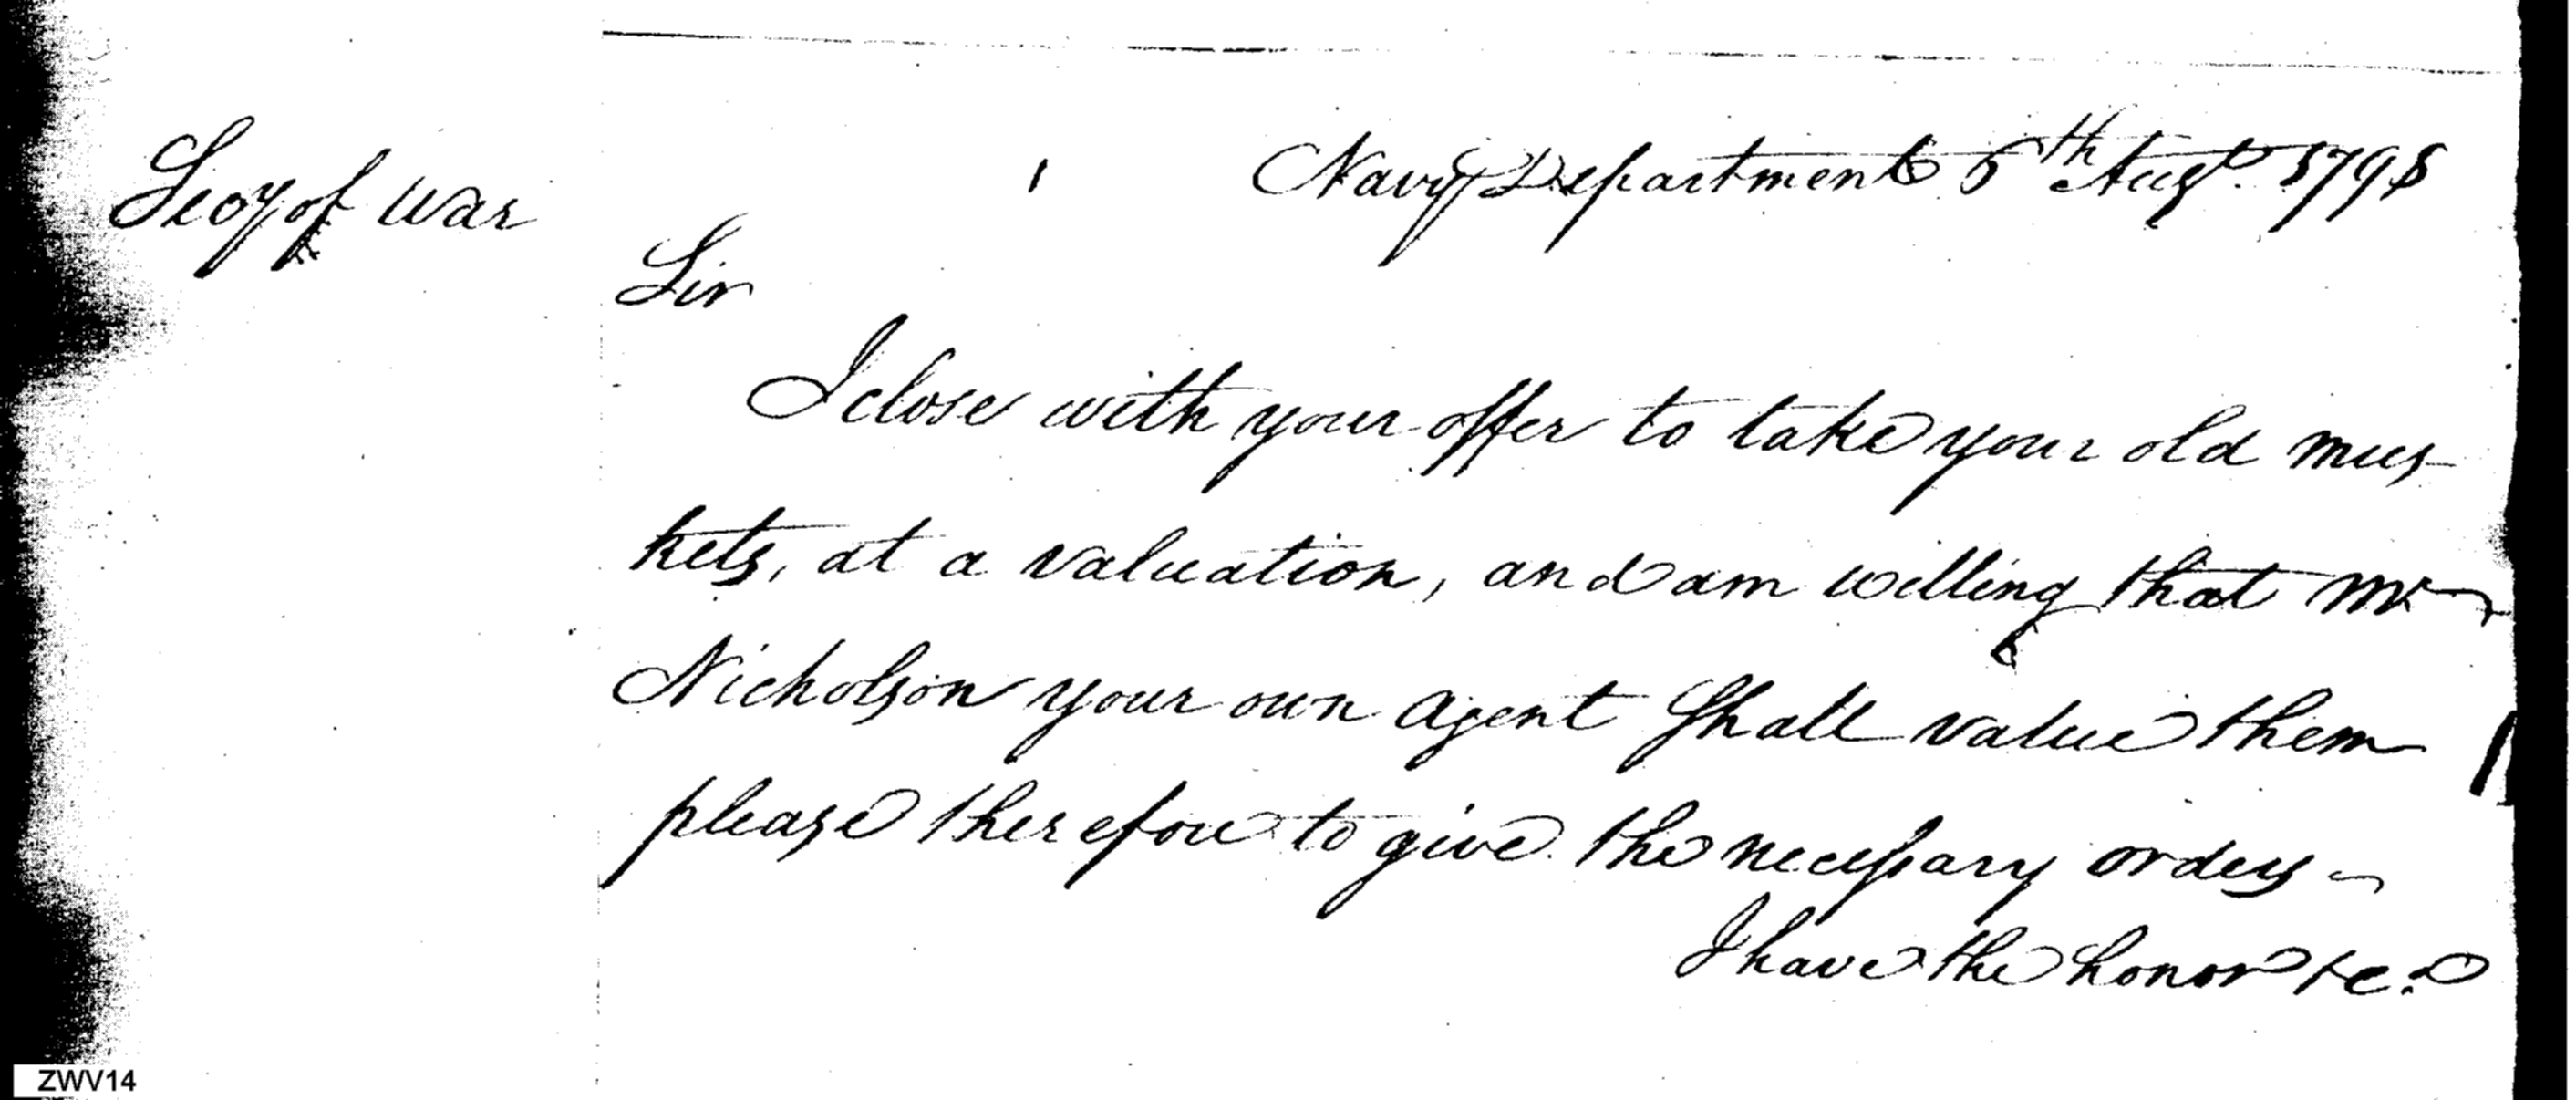 Secy of War
Navy Department 6th Augt. 1798
Sir
I close with your offer to take your old mus-
kets, at a valuation, and am willing that Mr
Nicholson your own agent shall value them
please therefore to give the necessary orders –
I have the honor &c.
ZWV14